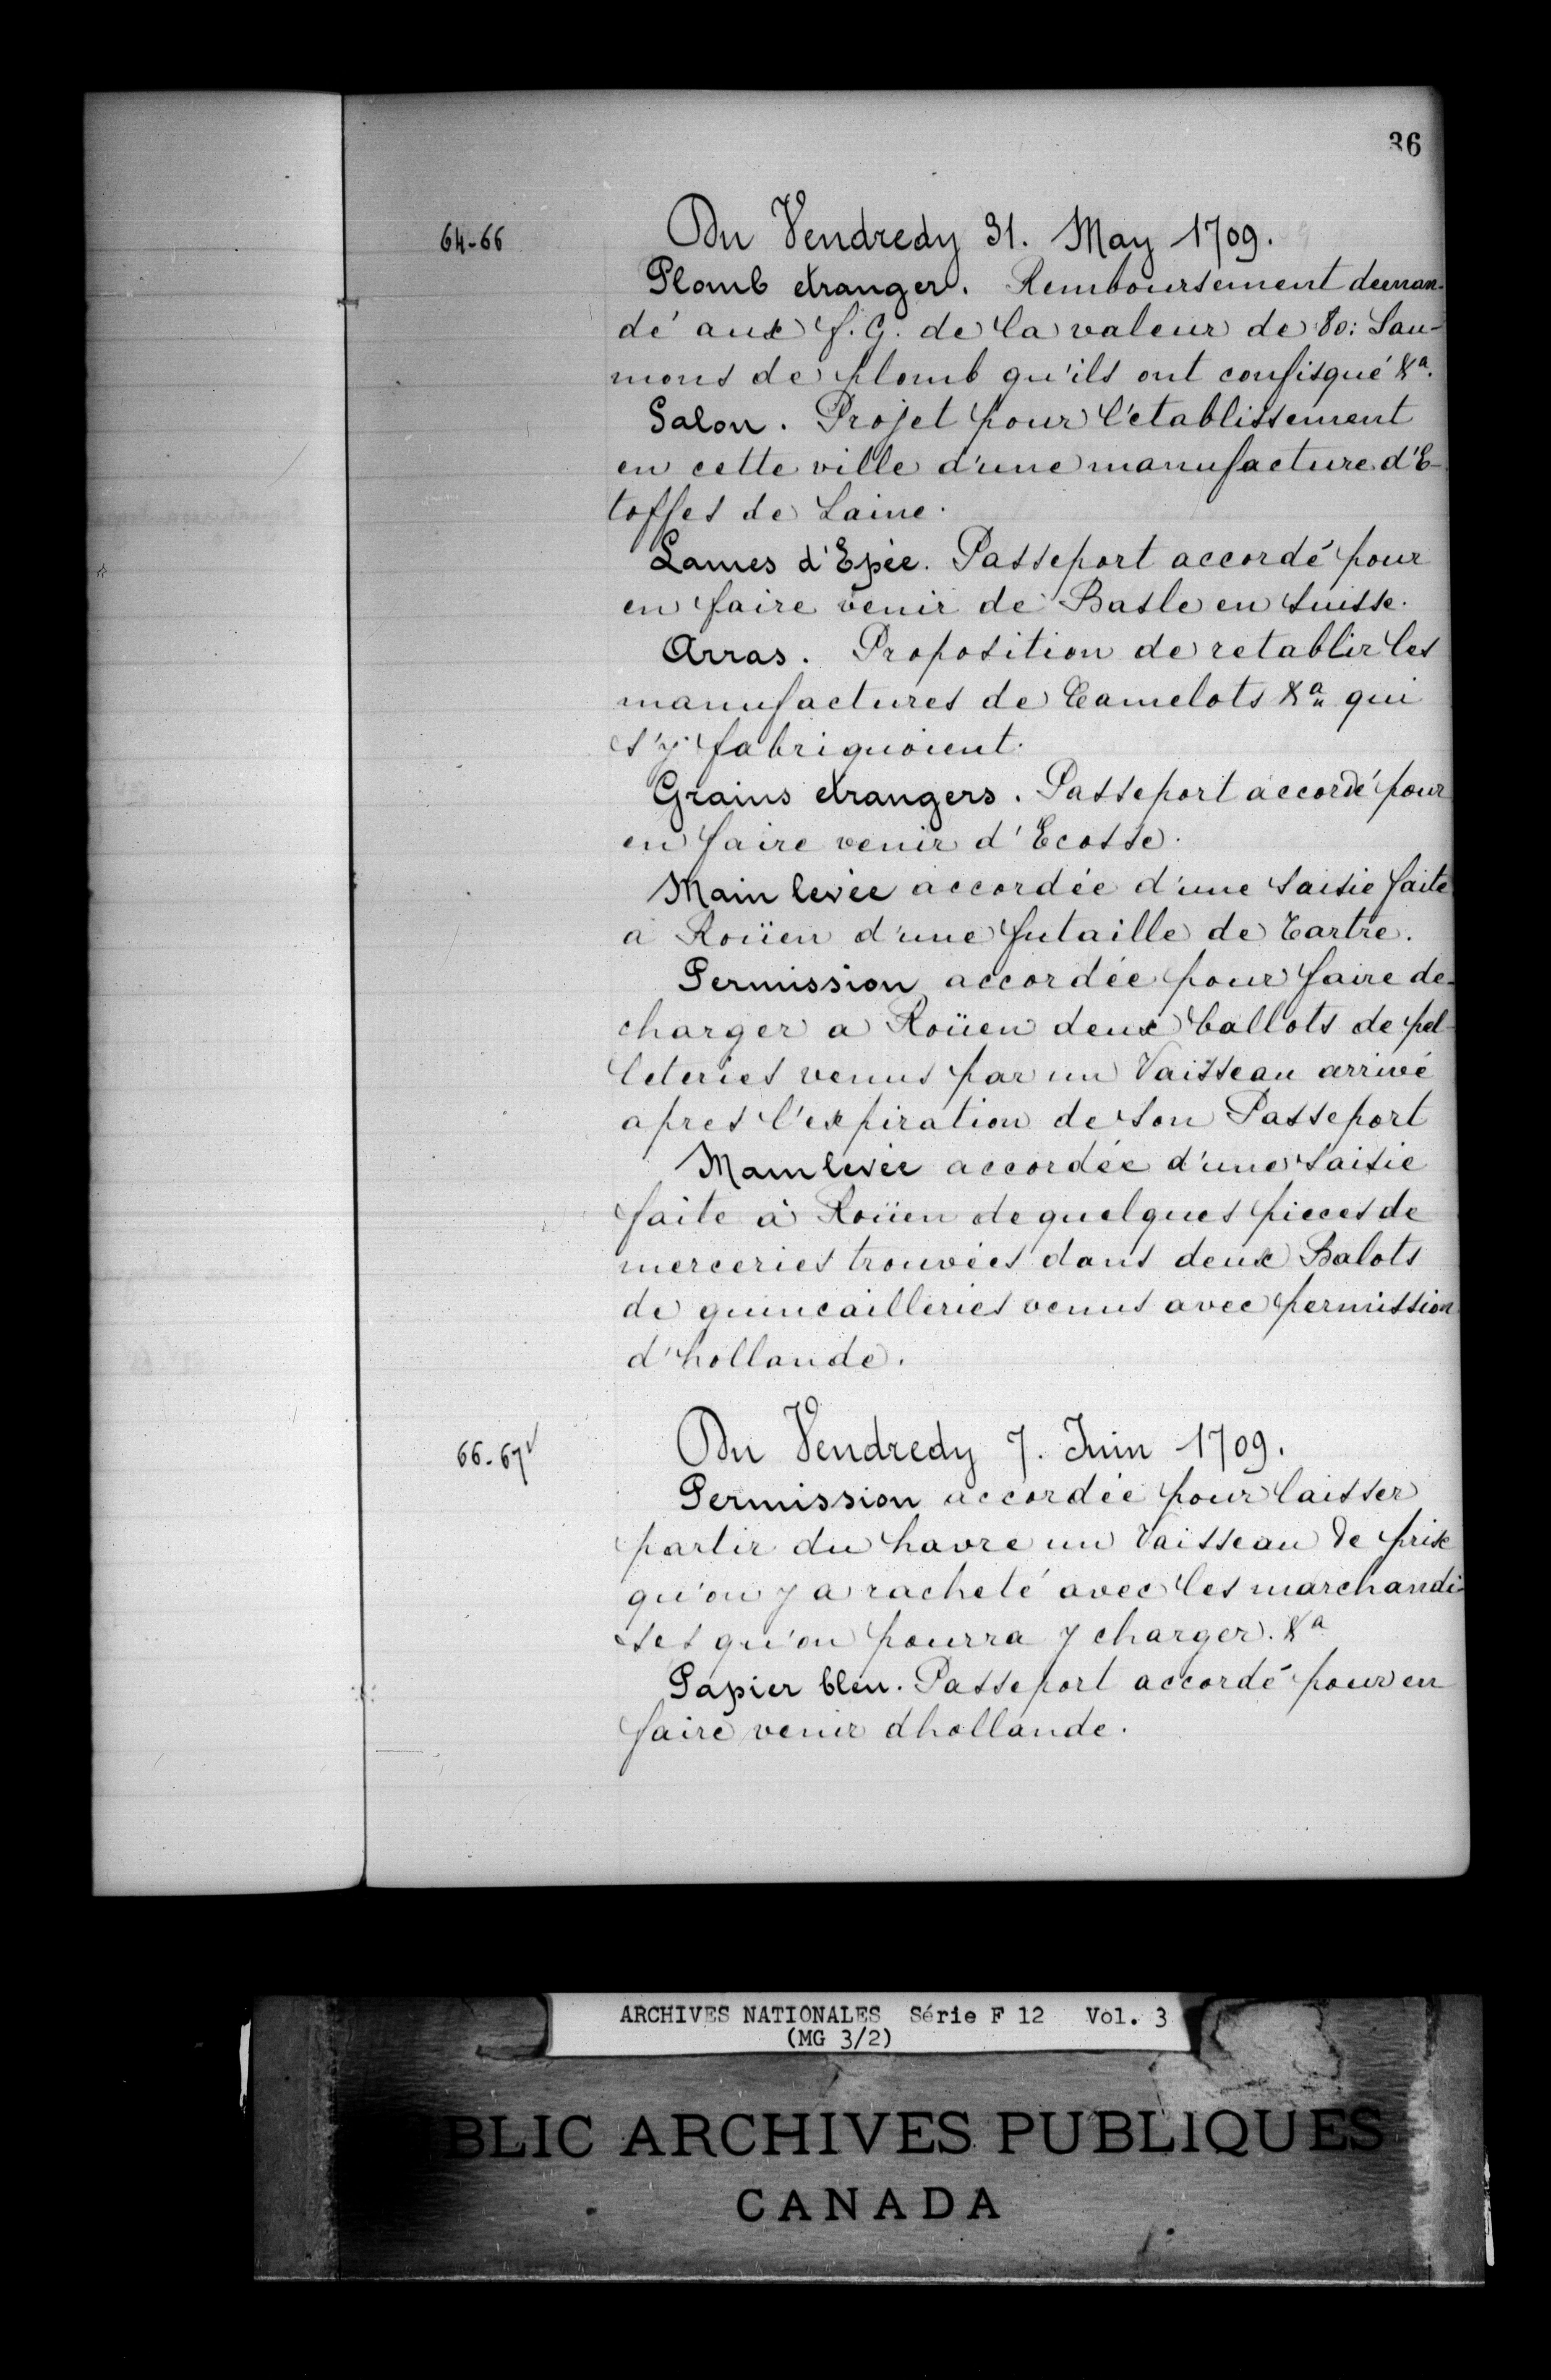 36
64-66
Du Vendredy 31. May 1709.
Plomb etranger. Remboursement deman-
dé aux f. G. de la valeur de 80: Sau-
mons de plomb qu'ils ont confisqué &a.
Salon. Projet pour l'etablissement
en cette ville d'une manufacture d'E-
toffes de Laine.
Lames d'Epée. Passeport accordé pour
en faire venir de Basle en Suisse.
Arras. Proposition de retablir les
manufactures de Camelots &a qui
s'y fabriquoient.
Grains etrangers. Passeport accordé pour
en faire venir d'Ecosse.
Main levée accordée d'une saisie faite
a Roüen d'une futaille de Tartre.
Permission accordée pour faire de-
charger a Roüen deux ballots de pel-
leteries venus par un Vaisseau arrivé
apres l'expiration de son Passeport
Main levée accordée d'une saisie
faite à Roüen de quelques pieces de
merceries trouvées dans deux Balots
de quincailleries venus avec permission
d'hollande.
66-67v
Du Vendredy 7. Juin 1709.
Permission accordée pour laisser
partir du havre un Vaisseau de prise
qu'on y a racheté avec les marchandi-
ses qu'on pourra y charger. &a
Papier bleu. Passeport accordé pour en
faire venir dhollande.
ARCHIVES NATIONALES Série F 12 Vol. 3
(MG 3/2)
BLIC ARCHIVES PUBLIQUES
CANADA